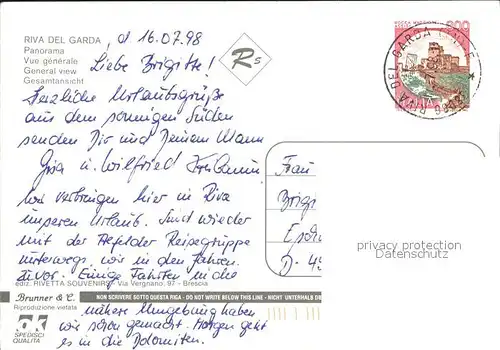 RIVA DEL GARDA, d 16.07.98
Panorama
Vue générale
General view
Gesamtansicht
Liebe Brigitte!
Herzliche Urlaubsgrüße
aus dem sonnigen Süden
senden Dir und Deinem Mann
Gisa u. Wilfried
Wir verbringen hier in Riva
unseren Urlaub. Sind wieder
mit der Reisegruppe
unterwegs, wie in den Jahren
zuvor. Einige Fahrten in die
nähere Umgebung haben
wir schon gemacht. Morgen geht
es in die Dolomiten.
Rs
RIVA DEL GARDA
Frau
Brigi
D-
privacy protection
Datenschutz
ediz. RIVETTA SOUVENIRS - Via Vergnano, 97 - Brescia
Brunner & C.
Riproduzione vietata
NON SCRIVERE SOTTO QUESTA RIGA - DO NOT WRITE BELOW THIS LINE - NICHT UNTERHALB DIE
SPEDISCI
QUALITÀ